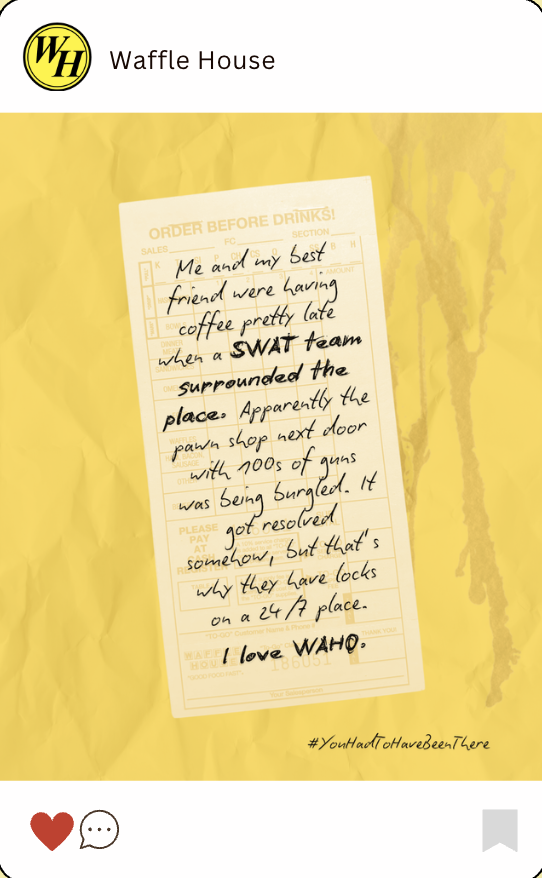 WH
Waffle House
ORDER BEFORE DRINKS!
SALES FC SECTION
AMOUNT
Me and my best
friend were having
coffee pretty late
when a SWAT team
surrounded the
place. Apparently the
pawn shop next door
with 100s of guns
was being burgled. It
got resolved
somehow, but that's
why they have locks
on a 24/7 place.
I love WAHO.
PLEASE
PAY
AT
"TO-GO" Customer Name & Phone #
THANK YOU
WAFFLE
HOUSE
186051
"GOOD FOOD FAST"
Your Salesperson
#YouHadToHaveBeenThere